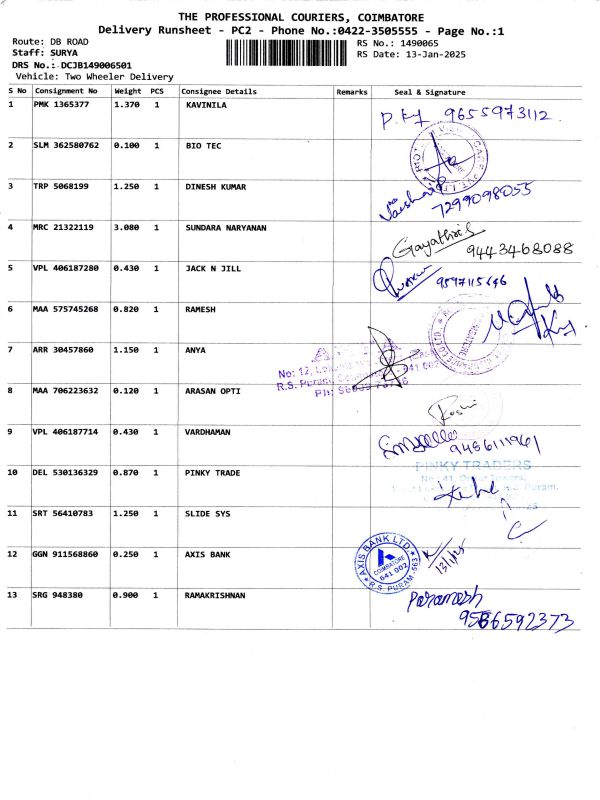 THE PROFESSIONAL COURIERS, COIMBATORE
Delivery Runsheet - PC2 - Phone No.:0422-3505555 - Page No.:1
Route: DB ROAD
RS No.: 1490065
Staff: SURYA
RS Date: 13-Jan-2025
DRS No.: DCJB149006501
Vehicle: Two Wheeler Delivery
S No Consignment No Weight PCS Consignee Details Remarks Seal & Signature
1 PMK 1365377 1.370 1 KAVINILA 9655973112
2 SLM 362580762 0.100 1 BIO TEC
3 TRP 5068199 1.250 1 DINESH KUMAR 7299098055
4 MRC 21322119 3.080 1 SUNDARA NARYANAN Gayathiri S 9443468088
5 VPL 406187280 0.430 1 JACK N JILL 9597115646
6 MAA 575745268 0.820 1 RAMESH
7 ARR 30457860 1.150 1 ANYA
No: 12,
R.S. Puram,
Ph:
8 MAA 706223632 0.120 1 ARASAN OPTI
9 VPL 406187714 0.430 1 VARDHAMAN 9456111961
10 DEL 530136329 0.870 1 PINKY TRADE
PINKY TRADERS
11 SRT 56410783 1.250 1 SLIDE SYS
12 GGN 911568860 0.250 1 AXIS BANK
AXIS BANK LTD.
COIMBATORE
641 002
R.S. PURAM-563
13/1/25
13 SRG 948380 0.900 1 RAMAKRISHNAN Paramesh
9566592373